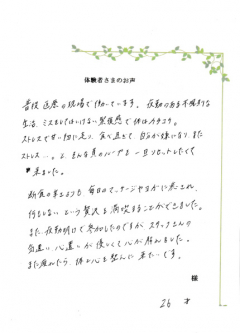 体験者さまのお声
普段医療の現場で働いています。夜勤のある不規則な
生活、ミスをしてはいけない緊張感で体はカチコチ。
ストレスで甘い物に走り、食べ過ぎて自分が嫌になり、また
ストレス…。と、そんな負のループを一旦リセットしたくて
来ました。
断食の辛さよりも毎日のマッサージやヨガに癒され、
何もしないという贅沢を満喫することができました。
また、夜勤明けで参加したのですが、スタッフさんの
気遣い心遣いが優しくて心が和みました。
また疲れたら、体と心を整えに来たいです。
様
26才